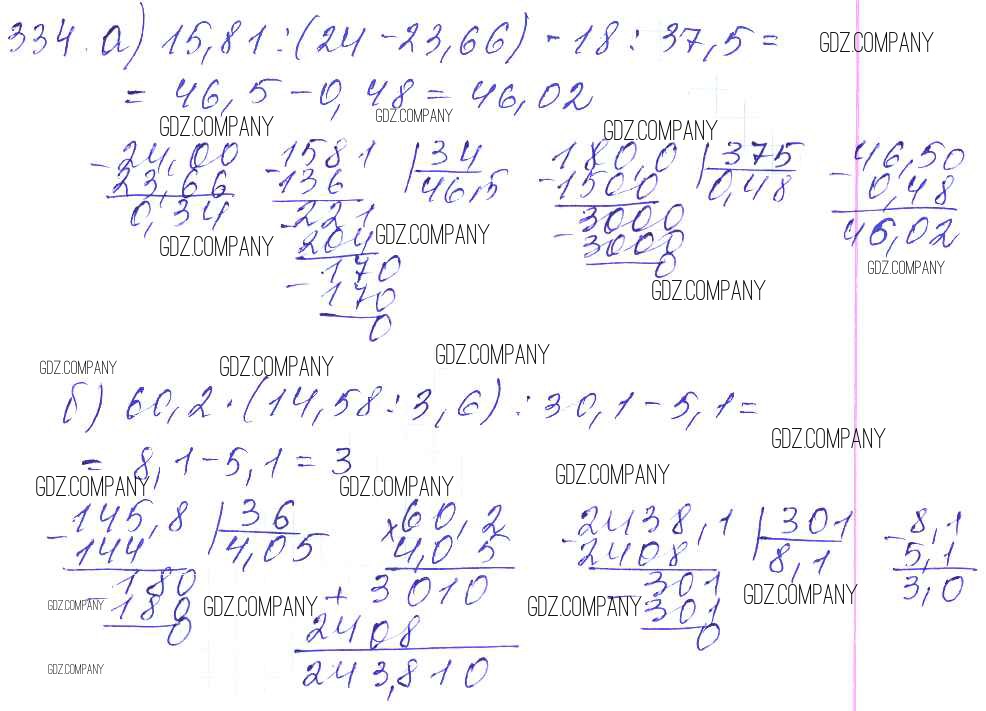 334. а) 15,81 : (24 - 23,66) - 18 : 37,5 =
GDZ.COMPANY
= 46,5 - 0,48 = 46,02
GDZ.COMPANY
GDZ.COMPANY
GDZ.COMPANY
- 24,00 - 1581 | 34 180,0 | 375 46,50
23,66 136 46,5 - 1500 0,48 - 0,48
0,34 - 221 - 3000 46,02
204 3000
GDZ.COMPANY GDZ.COMPANY GDZ.COMPANY
- 170 0
170 GDZ.COMPANY
0
GDZ.COMPANY GDZ.COMPANY GDZ.COMPANY
б) 60,2 · (14,58 : 3,6) : 30,1 - 5,1 =
GDZ.COMPANY
= 8,1 - 5,1 = 3
GDZ.COMPANY GDZ.COMPANY GDZ.COMPANY
- 145,8 | 36 × 60,2 - 2438,1 | 301 - 8,1
144 4,05 4,05 2408 8,1 5,1
- 180 + 3010 - 301 3,0
GDZ.COMPANY 180 GDZ.COMPANY GDZ.COMPANY 301 GDZ.COMPANY
0 2408 0
GDZ.COMPANY 243,810